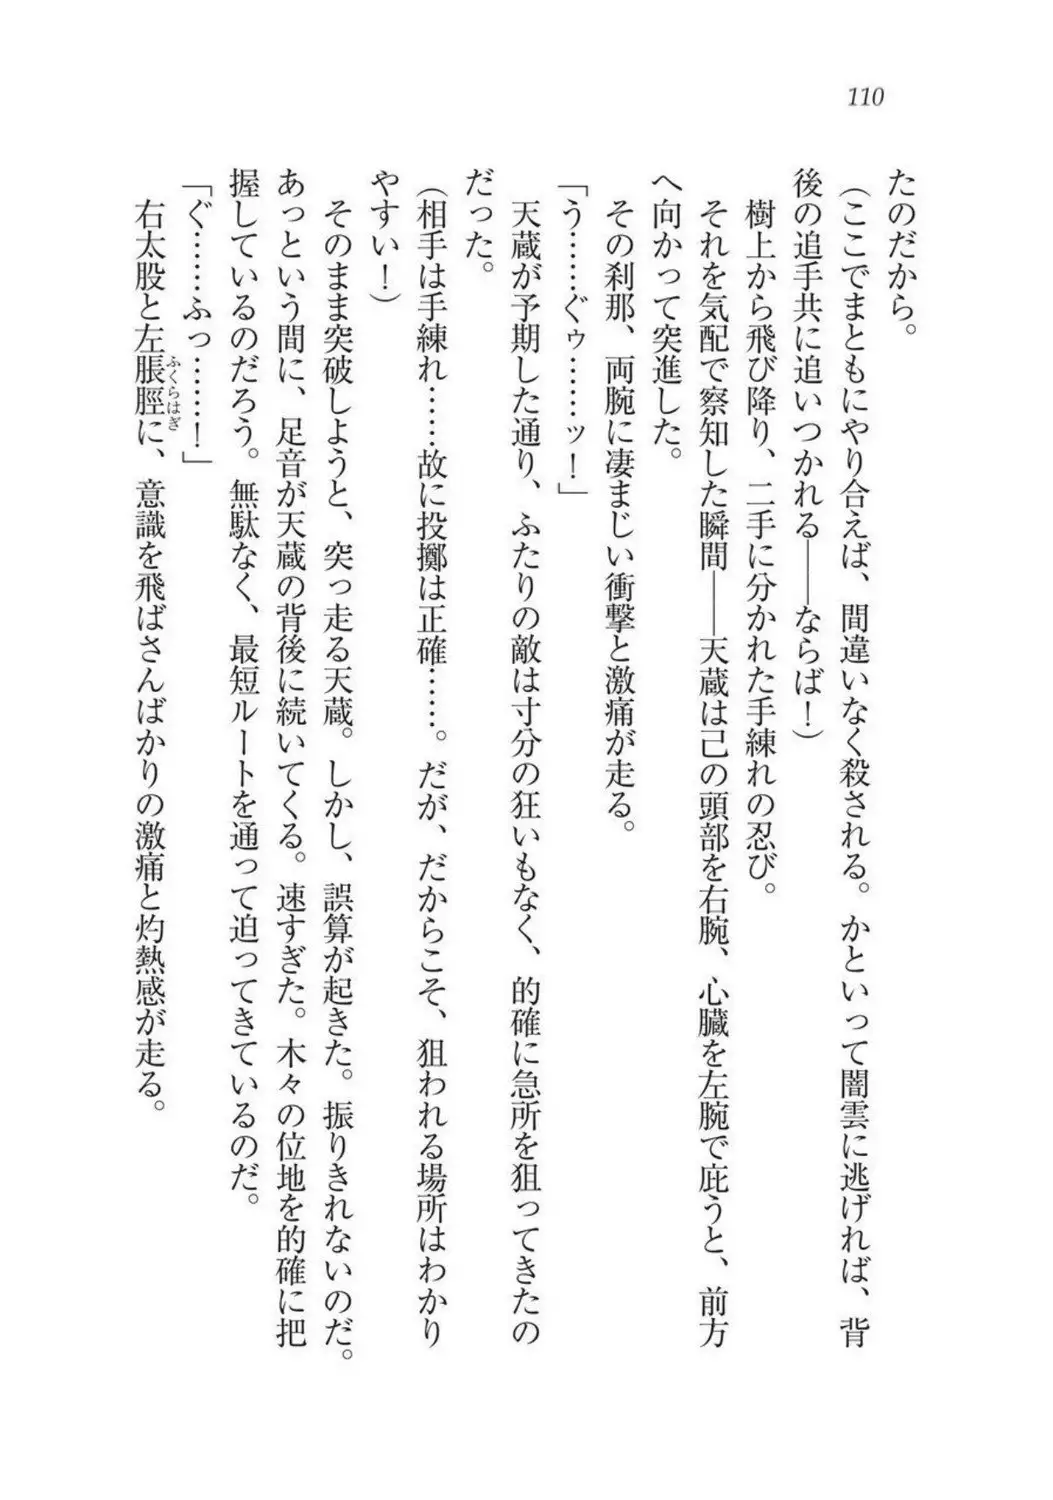 110
たのだから。
（ここでまともにやり合えば、間違いなく殺される。かといって闇雲に逃げれば、背
後の追手共に追いつかれる――ならば！）
樹上から飛び降り、二手に分かれた手練れの忍び。
それを気配で察知した瞬間――天蔵は己の頭部を右腕、心臓を左腕で庇うと、前方
へ向かって突進した。
その刹那、両腕に凄まじい衝撃と激痛が走る。
「う……ぐぅ……ッ！」
天蔵が予期した通り、ふたりの敵は寸分の狂いもなく、的確に急所を狙ってきたの
だった。
（相手は手練れ……故に投擲は正確……。だが、だからこそ、狙われる場所はわかり
やすい！）
そのまま突破しようと、突っ走る天蔵。しかし、誤算が起きた。振りきれないのだ。
あっという間に、足音が天蔵の背後に続いてくる。速すぎた。木々の位地を的確に把
握しているのだろう。無駄なく、最短ルートを通って迫ってきているのだ。
「ぐ……ふっ……！」
右太股と左脹脛に、意識を飛ばさんばかりの激痛と灼熱感が走る。
ふくらはぎ